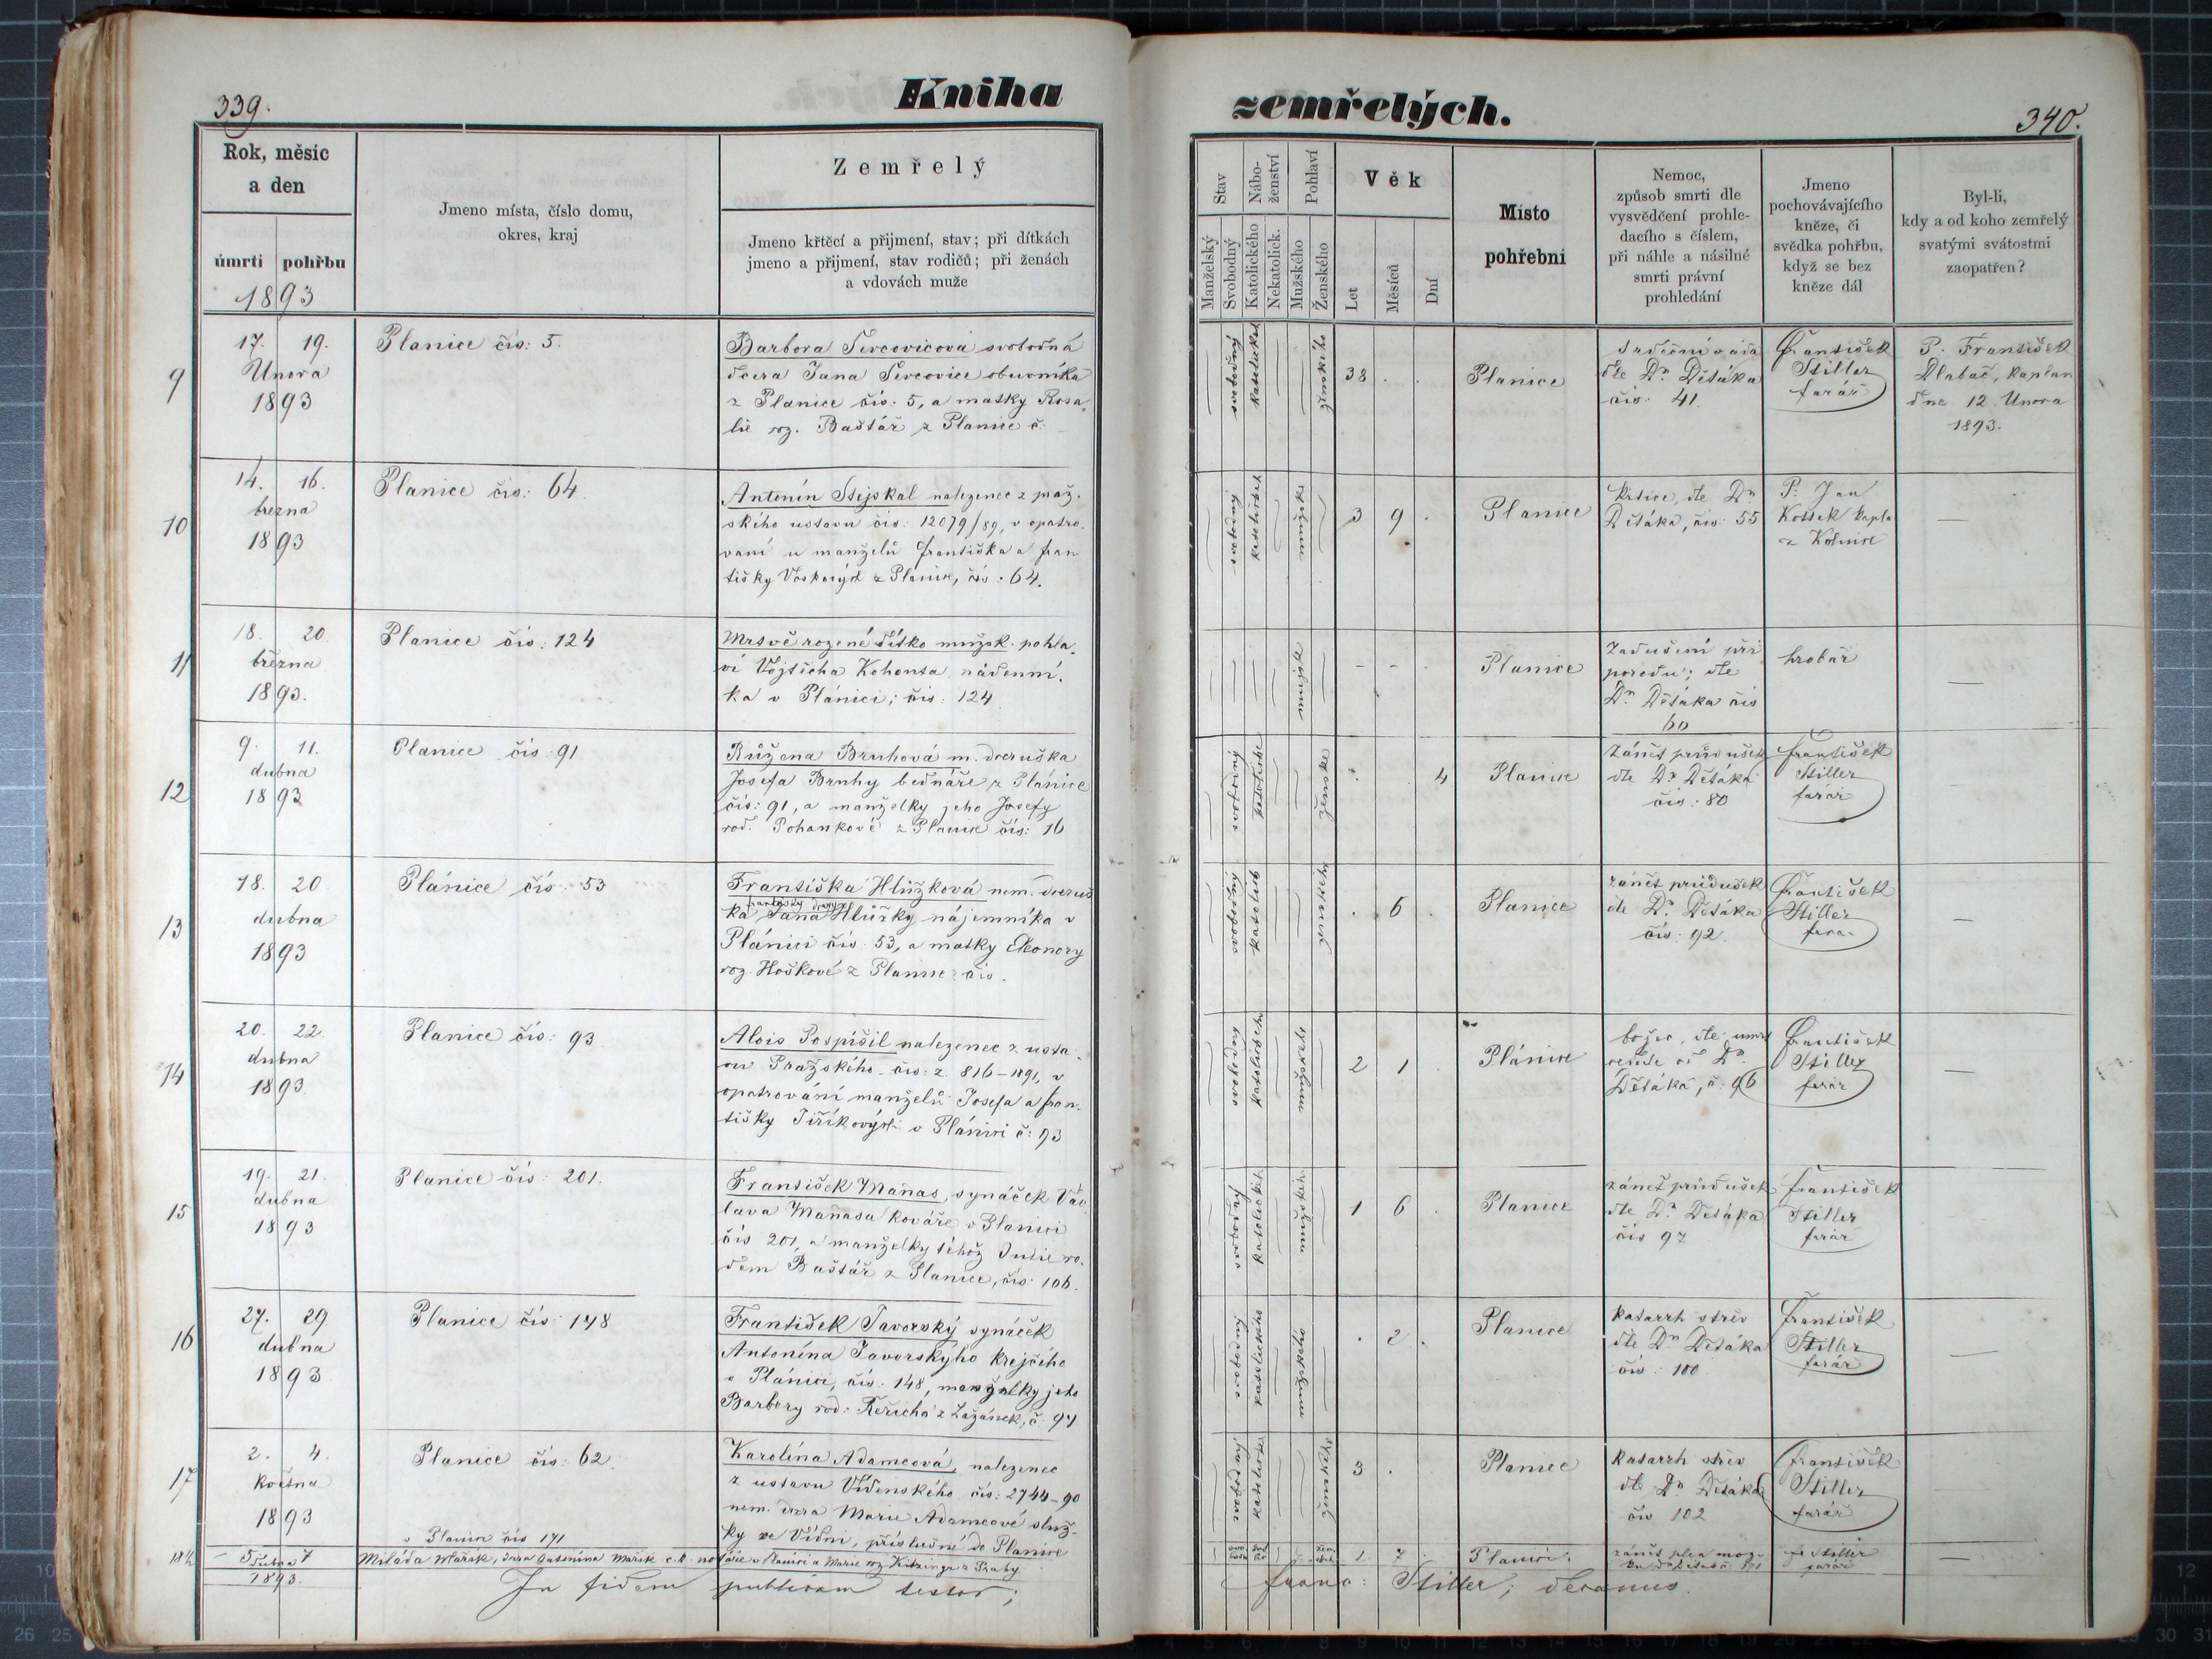 339.
Kniha
zemřelých.
340.
Rok, měsíc
a den
úmrtí pohřbu
1893
Jmeno místa, číslo domu,
okres, kraj
Zemřelý
Jmeno křtěcí a přijmení, stav; při dítkách
jmeno a přijmení, stav rodičů; při ženách
a vdovách muže
Stav
Manželský
Svobodný
Nábo-
ženství
Katolického
Nekatolick.
Pohlaví
Mužského
Ženského
Věk
Let
Měsíců
Dní
Místo
pohřební
Nemoc,
způsob smrti dle
vysvědčení prohle-
dacího s číslem,
při náhle a násilné
smrti právní
prohledání
Jmeno
pochovávajícího
kněze, či
svědka pohřbu,
když se bez
kněze dál
Byl-li,
kdy a od koho zemřelý
svatými svátostmi
zaopatřen?
9
17. 19.
Února
1893
Planice čís: 5.
Barbora Ševcovicova svobodná
dcera Jana Ševcovice obuvníka
z Planice čís: 5, a matky Rosa-
lie roz. Baštář z Planice č:
svobodný
ženského
38
Planice
Srdeční váda
dle Dr. Děťáka
čís: 41.
František
Stiller
farář
P. František
Dlabač, kaplan
dne 12 Února
1893.
10
14. 16.
března
1893
Planice čís: 64.
Antonín Stejskal nalezenec z praž-
ského ústavu čís: 12079/89, v opatro-
vaní u manželů Františka a Fran
tišky z Planice, čís: 64.
svobodný
3 9
Planice
dle Dr
Děťáka, čís: 55
P: Jan
kapla
z Kolince
11
18. 20.
března
1893.
Planice čís: 124
Mrtvě rozené dítko mužsk. pohla-
ví Vojtěcha Kohouta, nádenní-
ka v Plánici; čís: 124
Planice
Zadušení při
porodu; dle
Dr. Děťáka čís
60
hrobář
12
9. 11.
dubna
1893
Planice čís: 91
Růžena Bruhová m. dceruška
Josefa Bruhy bednáře z Plánice
čís: 91, a manželky jeho Josefy
rod. Pohankové z Planice čís: 16
svobodný
ženské
4
Planice
Zánět průdušek
dle Dr Děťáka
čís: 80
František
Stiller
farář
13
18. 20
dubna
1893
Plánice čís: 53
Františka Hlůžková nem. dceruš
ka Jana Hlůžky nájemníka v
Plánici čís: 53, a matky Eleonory
roz. Hoškové z Planice čís.
svobodný
6
Planice
zánět průdušek
dle Dr. Děťáka
čís: 92
František
Stiller
fara-
14
20. 22.
dubna
1893
Planice čís: 93
Alois Pospíšil nalezenec z usta-
vu Pražského čís: z. 816-1891, v
opatrování manželů Josefa a Fran-
tišky Jiříkových v Plánici č: 93
svobodný
2 1
Plánice
dle
od Dr.
Děťáka, č: 96
František
Stiller
farář
15
19. 21.
dubna
1893
Planice čís: 201.
František Maňas, synáček Vác
lava Maňasa kováře v Planici
čís 201, a manželky téhož Julie ro-
dem Baštář z Planice, čís: 106.
svobodný
1 6
Planice
zánět průdušek
dle Dr. Děťáka
čís 97
František
Stiller
farář
16
27. 29.
dubna
1893
Planice čís: 148
František Javorský synáček
Antonína Javorskýho krejčího
v Plánici, čís: 148, manželky jeho
Barbory rod: Řeřicha z Zažánek, č: 94
svobodný
2
Planice
katarrh střev
dle Dr Děťáka
čís: 100
František
Stiller
farář
17
2. 4.
května
1893
Planice čís: 62.
Karolína Adamcová, nalezenec
z ustavu Vídenského čís: 2744-90
nem. dcera Marie Adamcové služ-
ky ve Vídni, příslušné do Planice
svobodný
3
Planice
katarrh střev
dle Dr Děťáka
čís 102
František
Stiller
farář
5 dubna 7
1893.
v Planici čís 171
Miláda Mařík, dcera Antonína Mařík c.k. notáře v Planici a Marie roz z Prahy
1 7
Planici.
Stiller
farář
In fidem publicam testor;
Franc: Stiller, decanus.